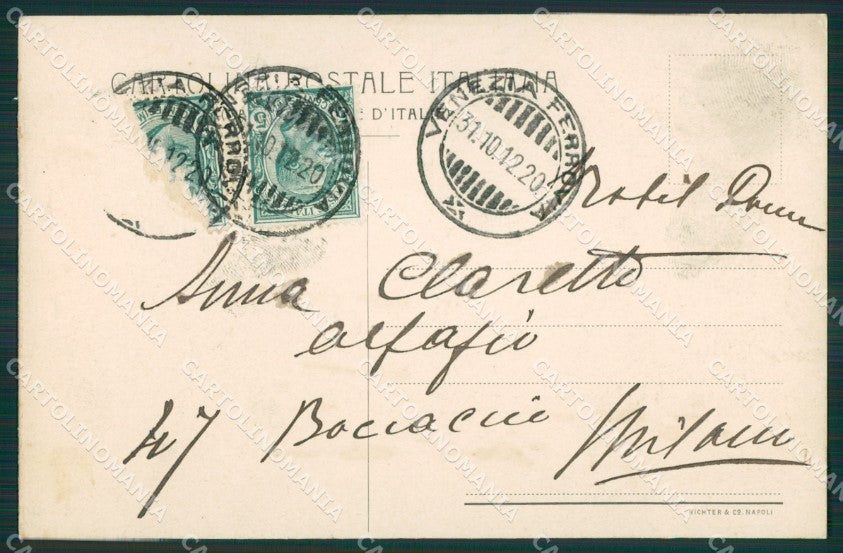 CARTOLINA POSTALE ITALIANA
D'ITALIA
VENEZIA FERROVIA
31.10.12.20
5
Nobil Donna
Anna Claretto
47 Boccaccio
Milano
RICHTER & Co. NAPOLI
CARTOLINOMANIA